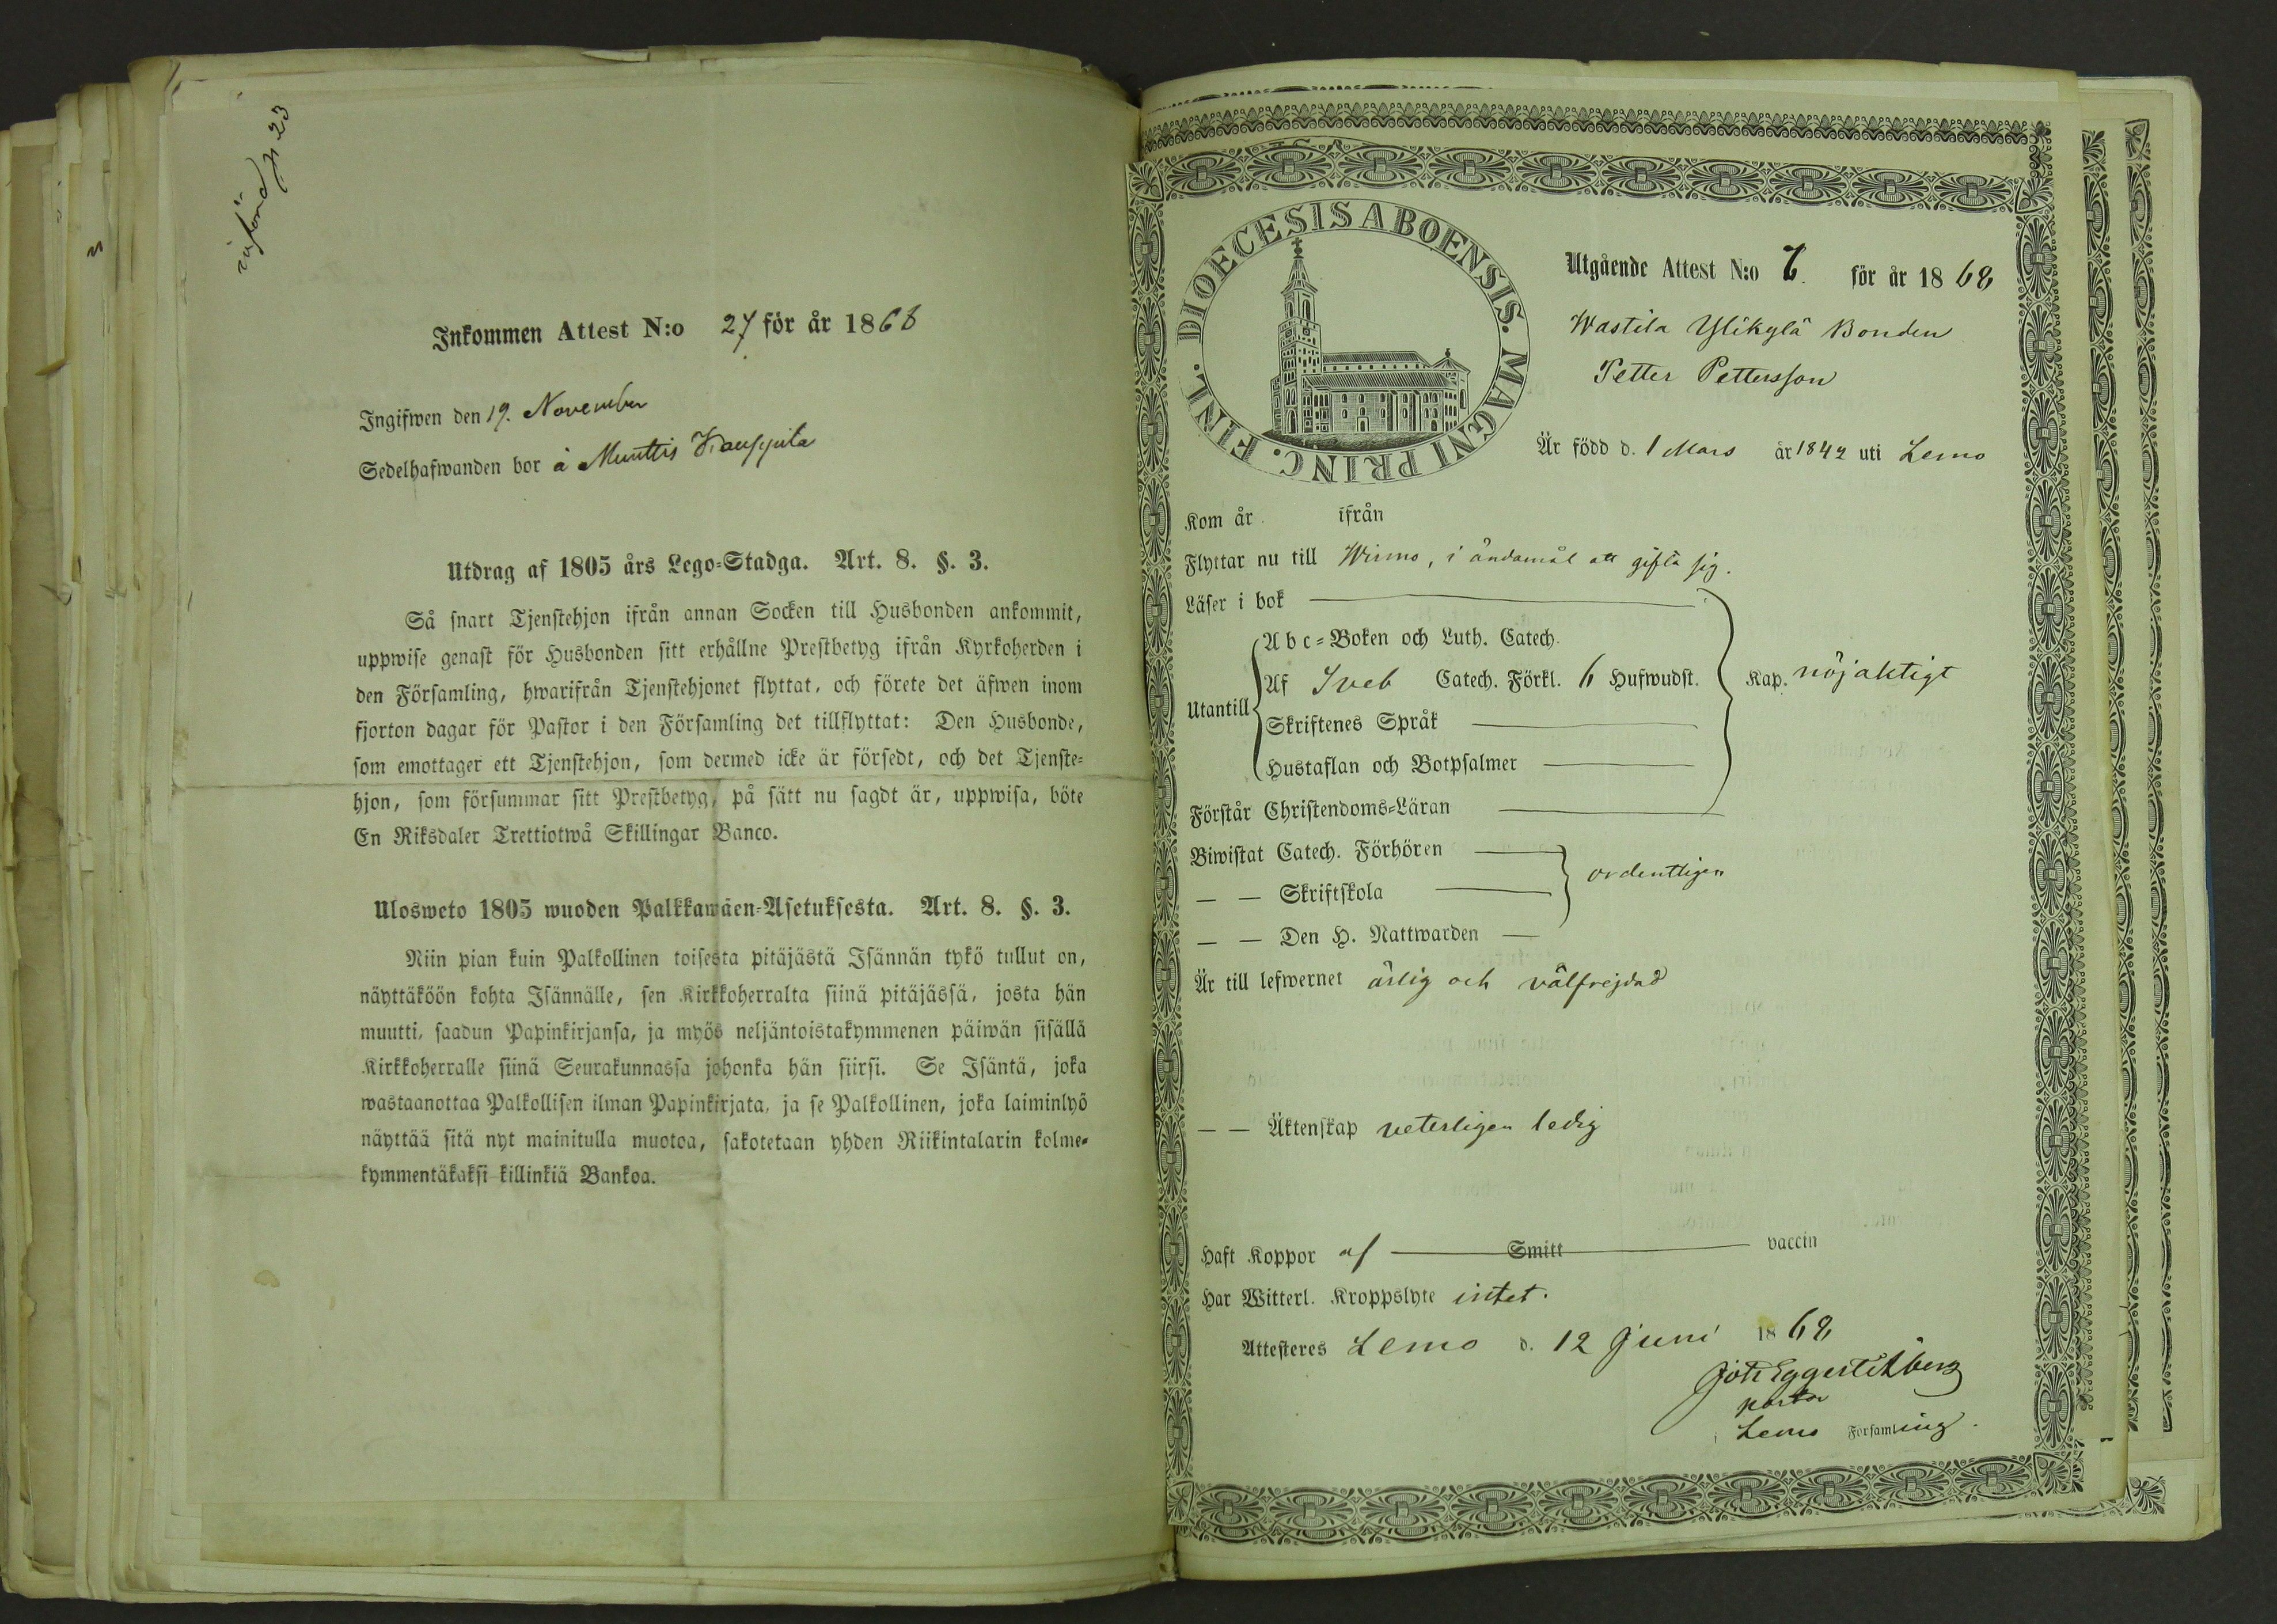 införd p 23
Inkommen Attest N:o 27 för år 1868
Ingifwen den 19. November
Sedelhafwanden bor å Munttis Kauppila
Utdrag af 1805 års Lego-Stadga. Art. 8. §. 3.
Så snart Tjenstehjon ifrån annan Socken till Husbonden ankommit,
uppwise genast för Husbonden sitt erhållne Prestbetyg ifrån Kyrkoherden i
den Församling, hwarifrån Tjenstehjonet flyttat, och förete det äfwen inom
fjorton dagar för Pastor i den Församling det tillflyttat: Den Husbonde,
som emottager ett Tjenstehjon, som dermed icke är försedt, och det Tjenste-
hjon, som försummar sitt Prestbetyg, på sätt nu sagdt är, uppwisa, böte
En Riksdaler Trettiotwå Skillingar Banco.
Ulosweto 1805 wuoden Palkkawäen-Asetuksesta. Art. 8. §. 3.
Niin pian kuin Palkollinen toisesta pitäjästä Isännän tykö tullut on,
näyttäköön kohta Isännälle, sen Kirkkoherralta siinä pitäjässä, josta hän
muutti, saadun Papinkirjansa, ja myös neljäntoistakymmenen päiwän sisällä
Kirkkoherralle siinä Seurakunnassa johonka hän siirsi. Se Isäntä, joka
wastaanottaa Palkollisen ilman Papinkirjata, ja se Palkollinen, joka laiminlyö
näyttää sitä nyt mainitulla muotoa, sakotetaan yhden Riikintalarin kolme-
kymmentäkaksi killinkiä Bankoa.
DIOECESIS ABOENSIS. MAGNI PRINC. FINL.
Utgående Attest N:o 7. för år 1868
Wastila Ylikylä Bonden
Petter Pettersson
Är född d. 1 Mars år 1842 uti Lemo
Kom år ifrån
Flyttar nu till Wirmo, i ändamål att gifta sig.
Läser i bok
Abc-Boken och Luth. Catech.
Utantill Af Sveb Catech. Förkl. 6 Hufwudst. Kap. nöjaktigt
Skriftenes Språk
Hustaflan och Botpsalmer
Förstår Christendoms-Läran
Biwistat Catech. Förhören
— — Skriftskola ordentligen
— — Den H. Nattwarden
Är till lefwernet ärlig och välfrejdad
— — Äktenskap veterligen ledig
Haft Koppor af Smitt vaccin
Har Witterl. Kroppslyte intet.
Attesteres Lemo d. 12 Juni 1868
Pastor
i Lemo Församling.